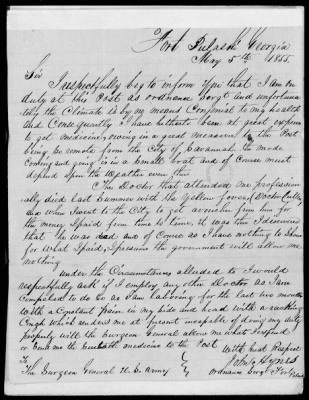 Fort Pulaski Georgia
May 5th 1855.
Sir
I respectfully beg to inform you that I am on
duty at this Post as ordnance Sergt and unfortuna-
tely the Climate is by no means Congenial to my health
and Consequently I have hitherto been at great expense
to get medicine, owing in a great measure to the Post
being so remote from the City of Savannah. The mode
Coming and going is in a Small boat and of Course must
depend upon the Weather even then
The Doctor that attended me profession-
ally died last Summer with the yellow fever, Doctor
and when I went to the City to get a voucher from him for
the money I paid from time to time, it was then I discovered
that he was dead and of Course as I have nothing to Show
for what I paid, I presume the government will allow me
nothing
under the Circumstances alluded to I would
respectfully ask if I employ any other Doctor as I am
Compelled to do so as I am laboring for the last two months
with a Constant pain in my side and head with a racking
Cough which renders me at present incapable of doing my duty
properly will the Surgeon General allow me what I expend
or Cause me the medicine to the Post
With Great Respect
John Hynes
ordnance Sergt Fort Pulaski
To
The Surgeon General U.S. Army